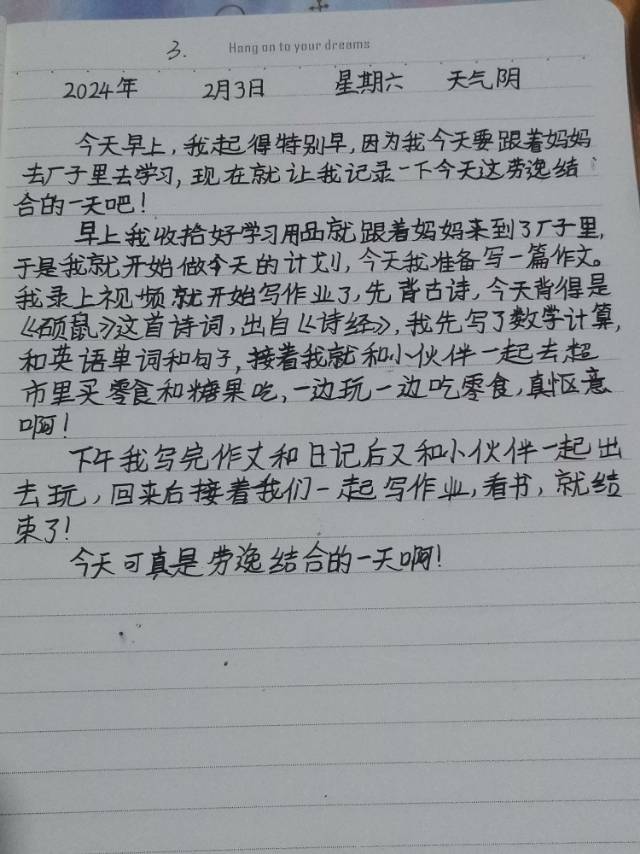 3.
Hang on to your dreams
2024年 2月3日 星期六 天气阴
今天早上，我起得特别早，因为我今天要跟着妈妈
去厂子里去学习，现在就让我记录一下今天这劳逸结
合的一天吧！
早上我收拾好学习用品就跟着妈妈来到了厂子里，
于是我就开始做今天的计划，今天我准备写一篇作文。
我录上视频就开始写作业了，先背古诗，今天背得是
《硕鼠》这首诗词，出自《诗经》，我先写了数学计算，
和英语单词和句子，接着我就和小伙伴一起去超
市里买零食和糖果吃，一边玩一边吃零食，真惬意
啊！
下午我写完作文和日记后又和小伙伴一起出
去玩，回来后接着我们一起写作业，看书，就结
束了！
今天可真是劳逸结合的一天啊！